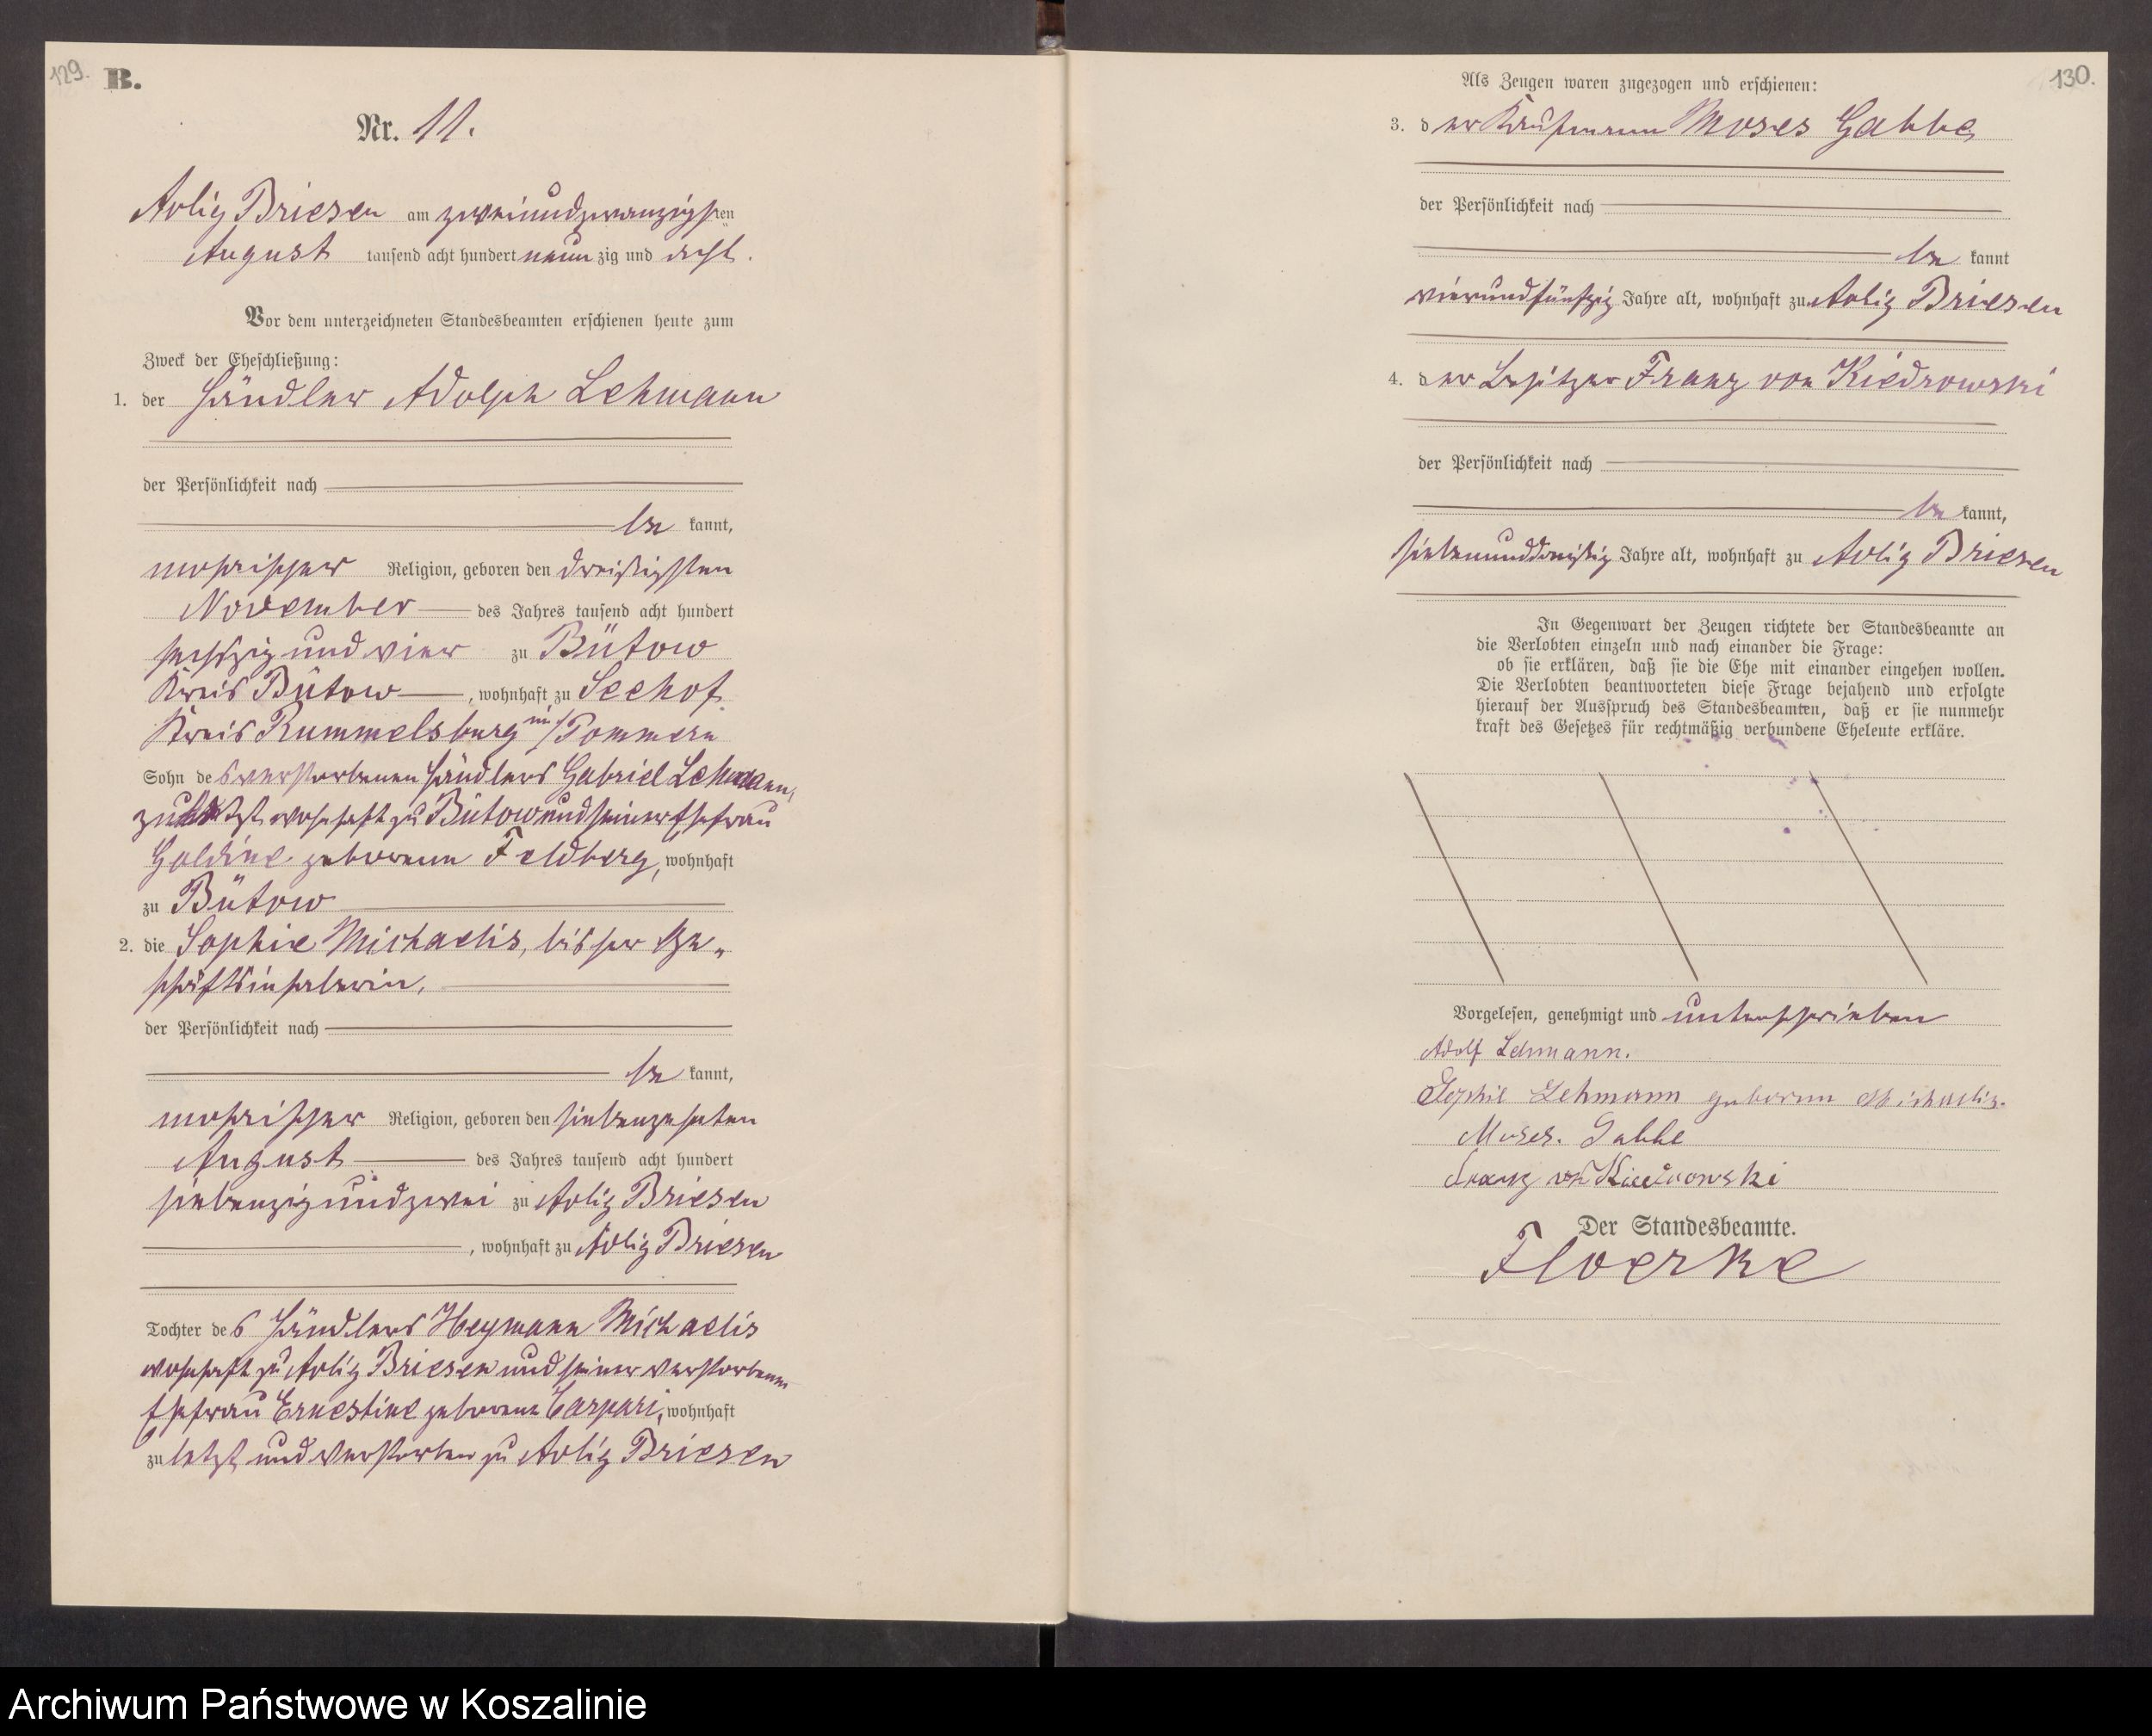 129.
B.
Nr. 11.
Adlig Briesen am zweiundzwanzigsten
August tausend acht hundert neunzig und acht.
Vor dem unterzeichneten Standesbeamten erschienen heute zum
Zweck der Eheschließung:
1. der Händler Adolph Lehmann
der Persönlichkeit nach
be kannt,
mosaischer Religion, geboren den dreißigsten
November des Jahres tausend acht hundert
sechszig und vier zu Bütow
Kreis Bütow, wohnhaft zu Seehof
Kreis Rummelsburg in/Pommern
Sohn des verstorbenen Händlers Gabriel Lehmann,
zuletzt wohnhaft zu Bütow und seiner Ehefrau
Goldine geborene Feldberg, wohnhaft
zu Bütow
2. die Sophie Michaelis, bisher Ge-
schäftsinhaberin,
der Persönlichkeit nach
be kannt,
mosaischer Religion, geboren den siebenzehnten
August des Jahres tausend acht hundert
siebenzig und zwei zu Adlig Briesen
, wohnhaft zu Adlig Briesen
Tochter des Händlers Heymann Michaelis
wohnhaft zu Adlig Briesen und seiner verstorbenen
Ehefrau Ernestine geborene Caspari, wohnhaft
zuletzt und verstorben zu Adlig Briesen
130.
Als Zeugen waren zugezogen und erschienen:
3. der Kaufmann Moses Gabbe
der Persönlichkeit nach
be kannt
vierundfünfzig Jahre alt, wohnhaft zu Adlig Briesen
4. der Besitzer Franz von Kiedrowski
der Persönlichkeit nach
be kannt,
siebenunddreißig Jahre alt, wohnhaft zu Adlig Briesen
In Gegenwart der Zeugen richtete der Standesbeamte an
die Verlobten einzeln und nach einander die Frage:
ob sie erklären, daß sie die Ehe mit einander eingehen wollen.
Die Verlobten beantworteten diese Frage bejahend und erfolgte
hierauf der Ausspruch des Standesbeamten, daß er sie nunmehr
kraft des Gesetzes für rechtmäßig verbundene Eheleute erkläre.
Vorgelesen, genehmigt und unterschrieben
Adolf Lehmann.
Sophie Lehmann geboren Michaelis.
Moses. Gabbe
Franz von Kiedrowski
Der Standesbeamte.
Floerke
Archiwum Państwowe w Koszalinie